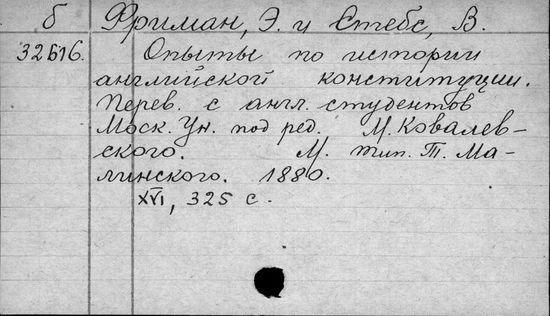 б Фриман, Э. и Стебс, В.
32616. Опыты по истории
английской конституции.
Перев. с англ. студентов
Моск. Ун. под ред. М. Ковалев-
ского. М. тип. Т. Ма-
линского. 1880.
XVI, 325 с.